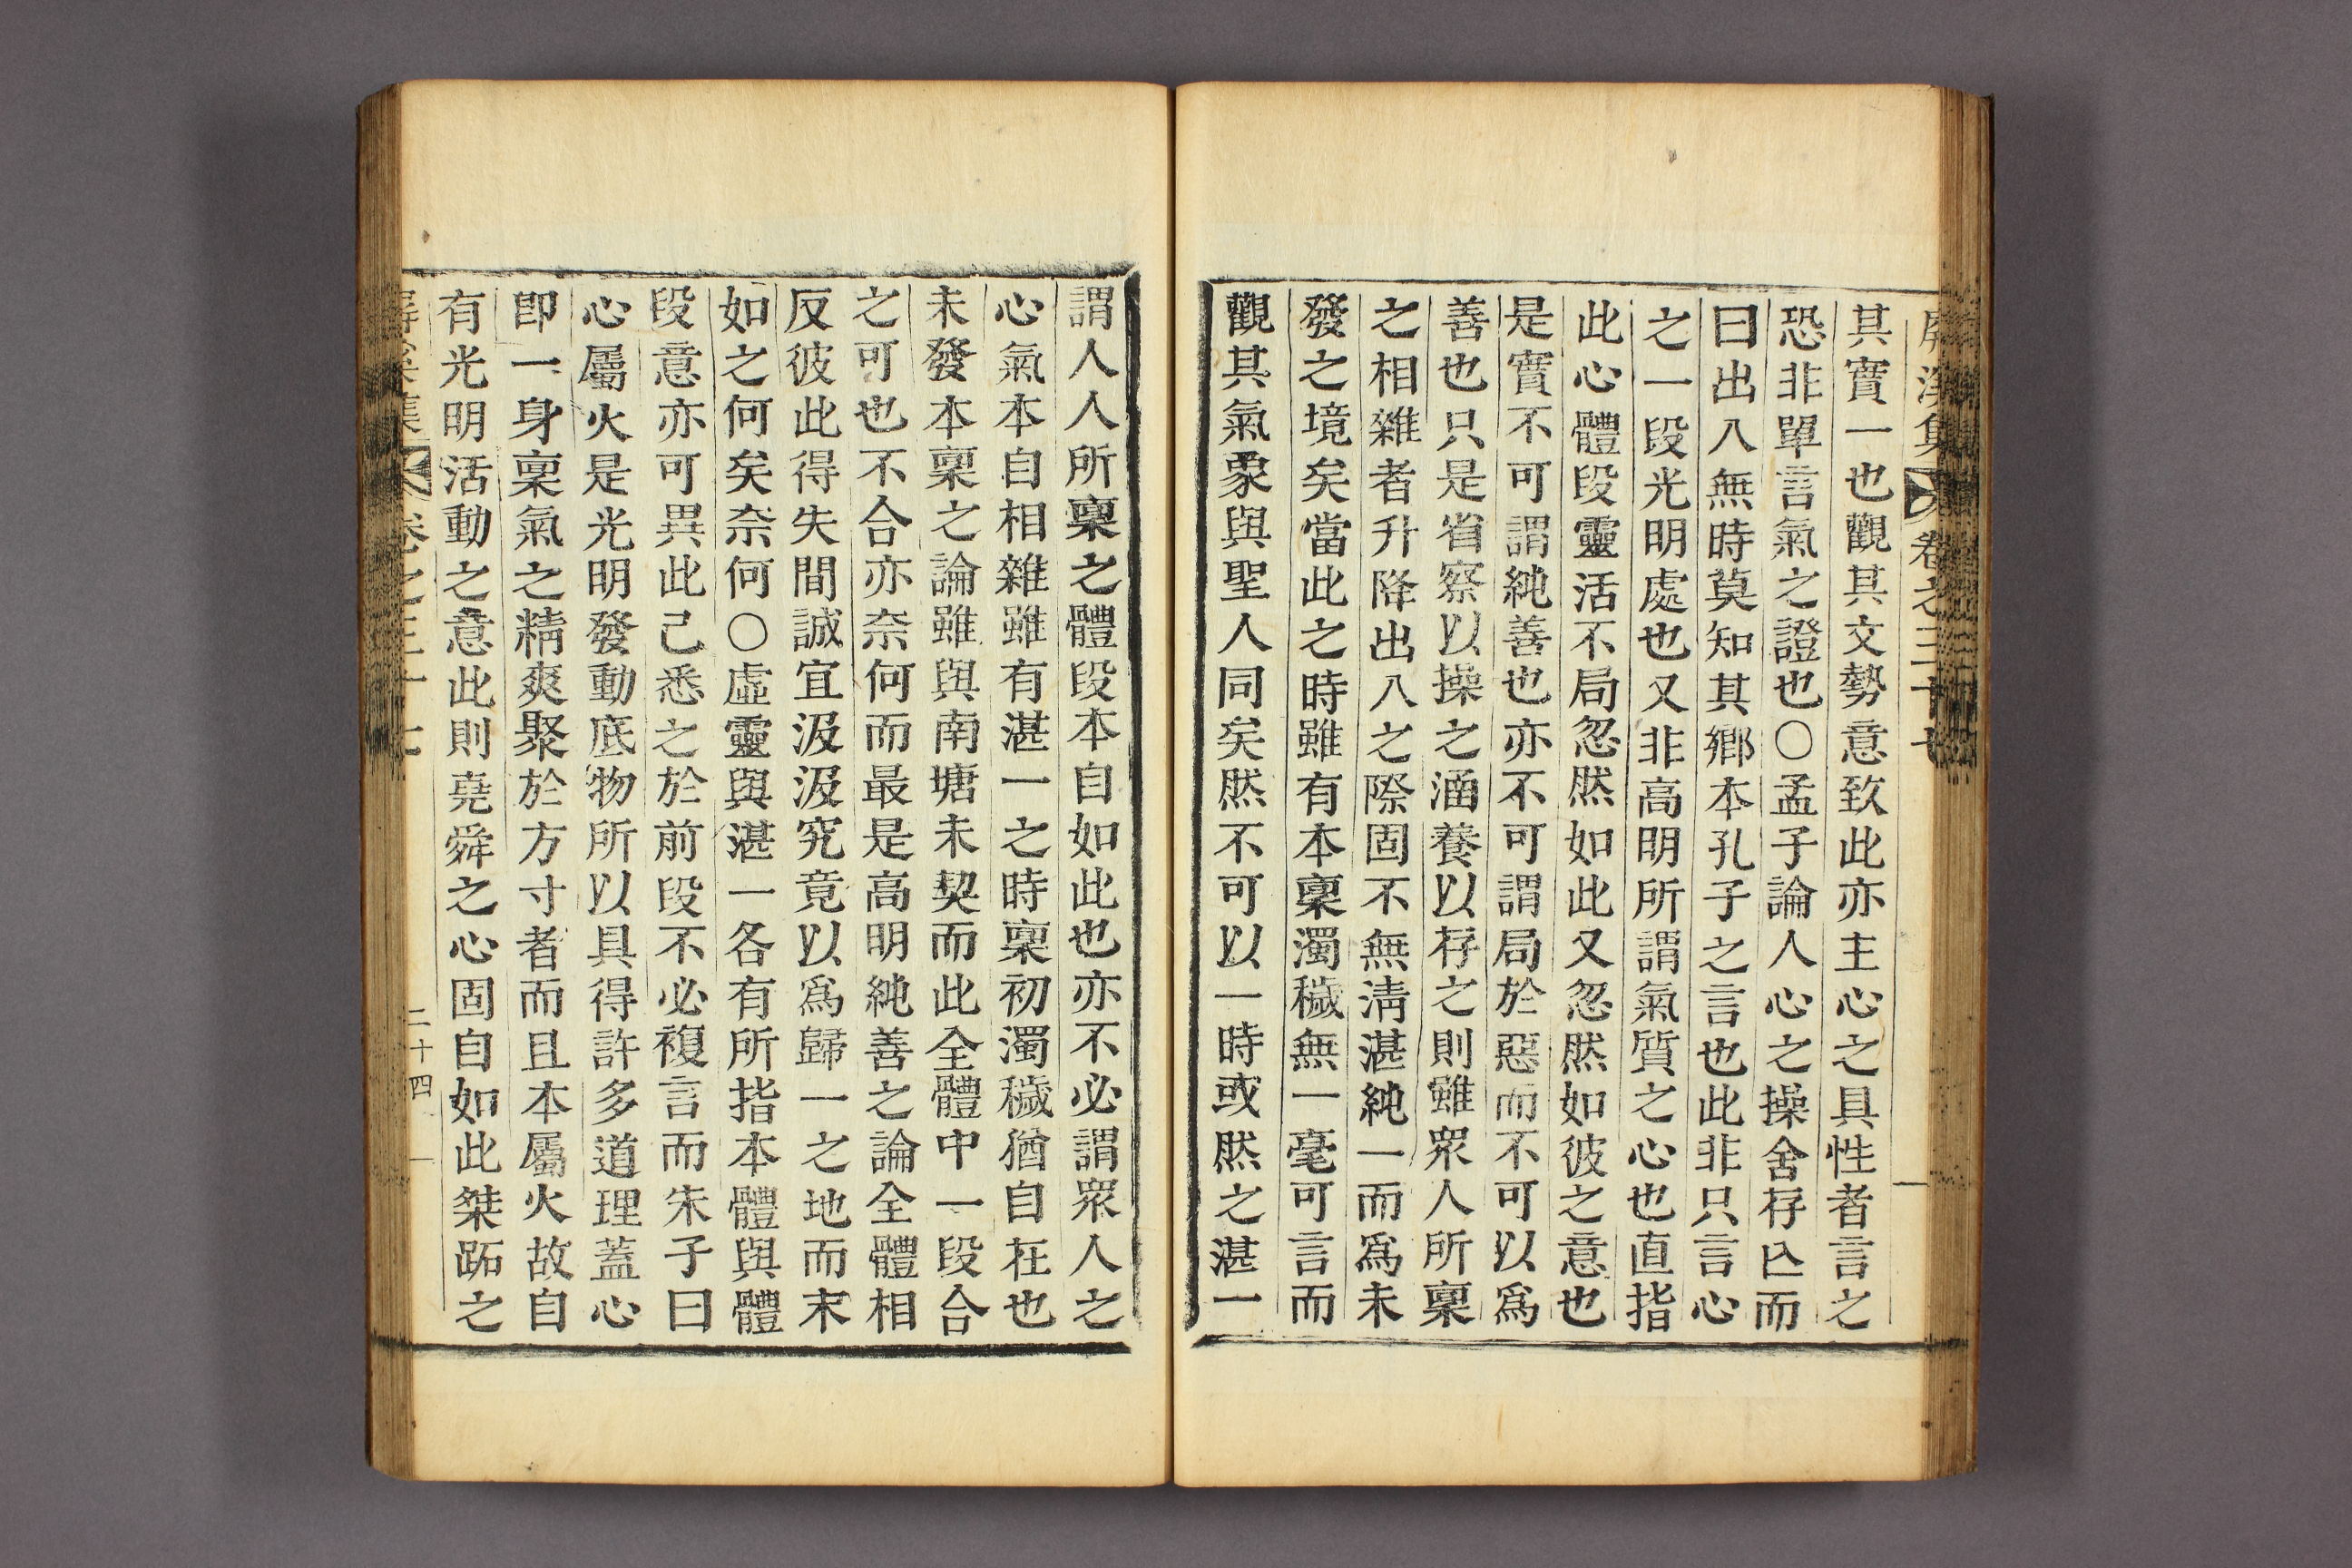 屏溪集 卷之三十七
其實一也觀其文勢意致此亦主心之具性者言之
恐非單言氣之證也〇孟子論人心之操舍存亾而
曰出入無時莫知其鄕本孔子之言也此非只言心
之一段光明處也又非高明所謂氣質之心也直指
此心體段靈活不局忽然如此又忽然如彼之意也
是實不可謂純善也亦不可謂局於惡而不可以爲
善也只是省察以操之涵養以存之則雖衆人所稟
之相雜者升降出入之際固不無淸湛純一而爲未
發之境矣當此之時雖有本稟濁穢無一毫可言而
觀其氣象與聖人同矣然不可以一時或然之湛一
謂人人所稟之體段本自如此也亦不必謂衆人之
心氣本自相雜雖有湛一之時稟初濁穢猶自在也
未發本稟之論雖與南塘未契而此全體中一段合
之可也不合亦奈何而最是高明純善之論全體相
反彼此得失間誠宜汲汲究竟以爲歸一之地而末
如之何矣奈何〇虛靈與湛一各有所指本體與體
段意亦可異此已悉之於前段不必複言而朱子曰
心屬火是光明發動底物所以具得許多道理蓋心
卽一身稟氣之精爽聚於方寸者而且本屬火故自
有光明活動之意此則堯舜之心固自如此桀跖之
屏溪集 卷之三十七 二十四